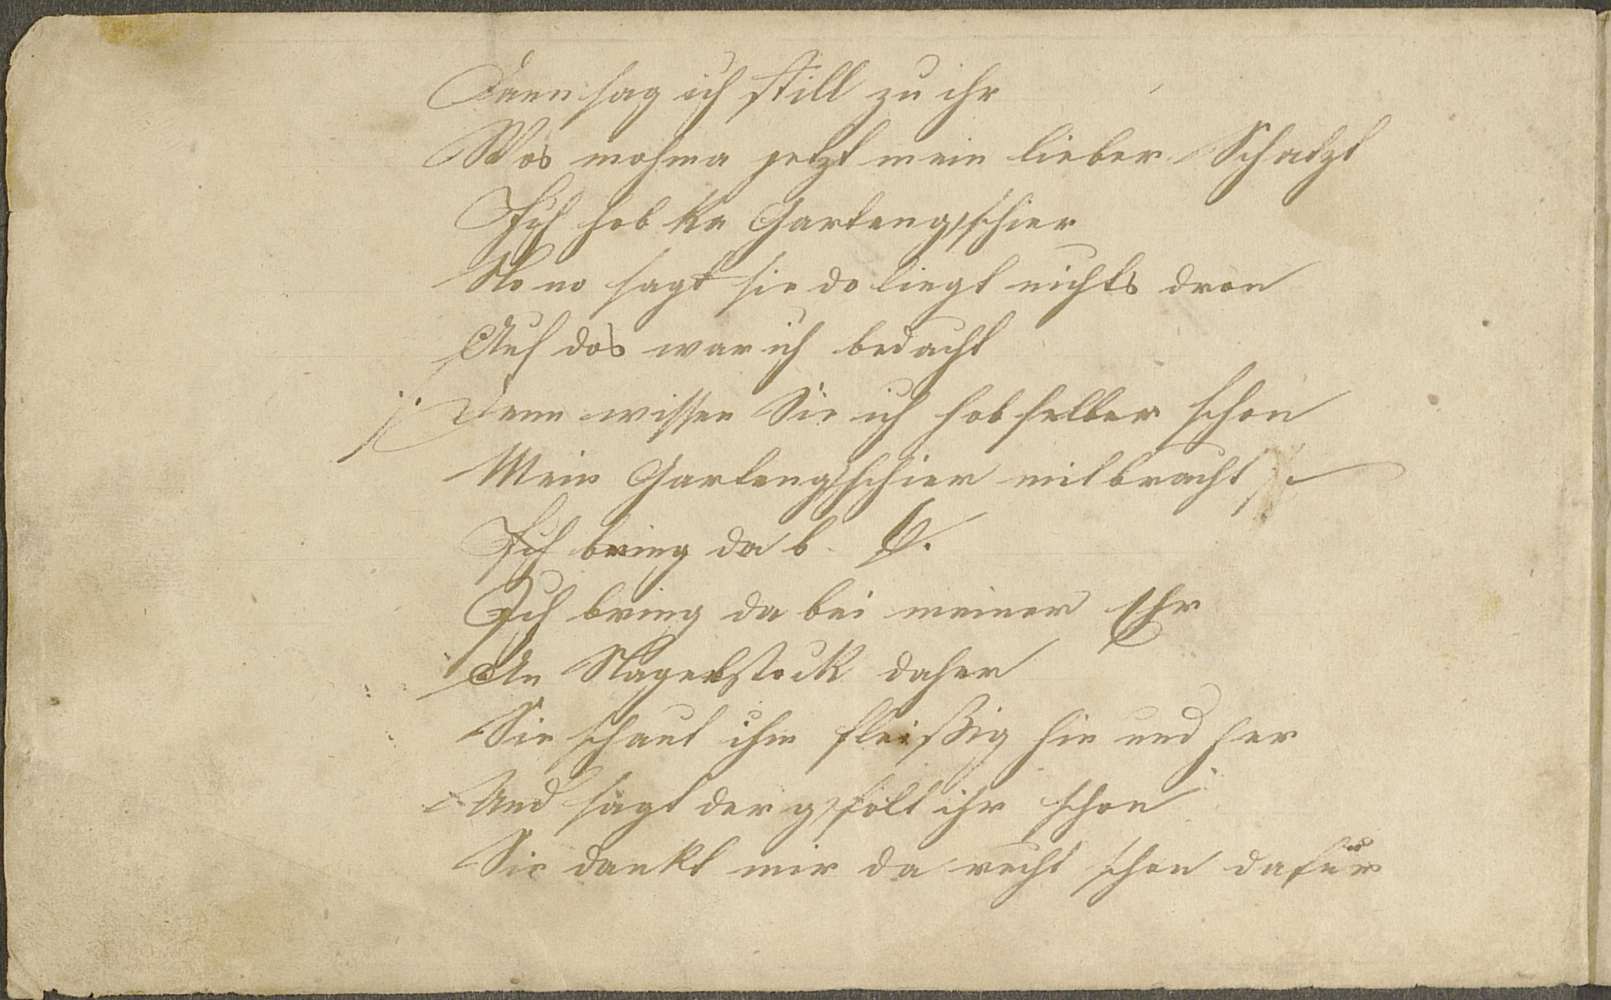 Dann sag ich still zu ihr
Wos mohma jetzt mein lieber Schatzt
Ich hob ka Gartengschier
No no sagt sie do liegt nichts dron
Auf dos war ich bedacht
/: Denn wissen Sie ich hob selber schon
Mein Gartengschier mitbracht :/
Ich bring da b
Ich bring da bei meiner Ehr
An Nagerlstock daher
Sie schaut ihm fleißig hin und her
Und sagt der gfollt ihr schon
Sie dankt mir da recht schon dafür